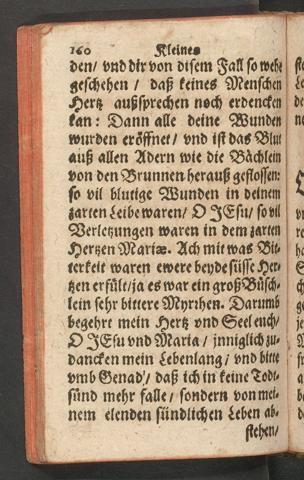 160 Kleines
den/ vnd dir von disem Fall so wehe
geschehen / daß keines Menschen
Hertz außsprechen noch erdencken
kan: Dann alle deine Wunden
wurden eröffnet/ vnd ist das Blut
auß allen Adern wie die Bächlein
von den Brunnen herauß geflossen:
so vil blutige Wunden in deinem
zarten Leibe waren/ O JEsu/ so vil
Verletzungen waren in dem zarten
Hertzen Mariæ. Ach mit was Bit-
terkeit waren ewere beyde süsse Her-
tzen erfült/ ja es war ein groß Büsch-
lein sehr bittere Myrrhen. Darumb
begehrt mein Hertz vnd Seel euch/
O JEsu vnd Maria / jnniglich zu-
dancken mein Lebenlang/ vnd bitte
vmb Genad'/ daß ich in keine Todt-
sünd mehr falle/ sondern von mei-
nem elenden sündlichen Leben ab-
stehen/